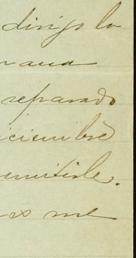 dirijo la
rana
reparado
iciembre
emitirle.
me